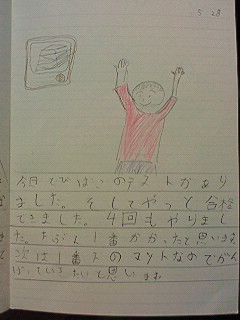 5 28
今日とびばこのテストがあり
ました。そしてやっと合格
できました。4回もやりまし
た。たぶん1番かかったと思います。
次は1番 のマットなのでがん
ばっていきたいと思います